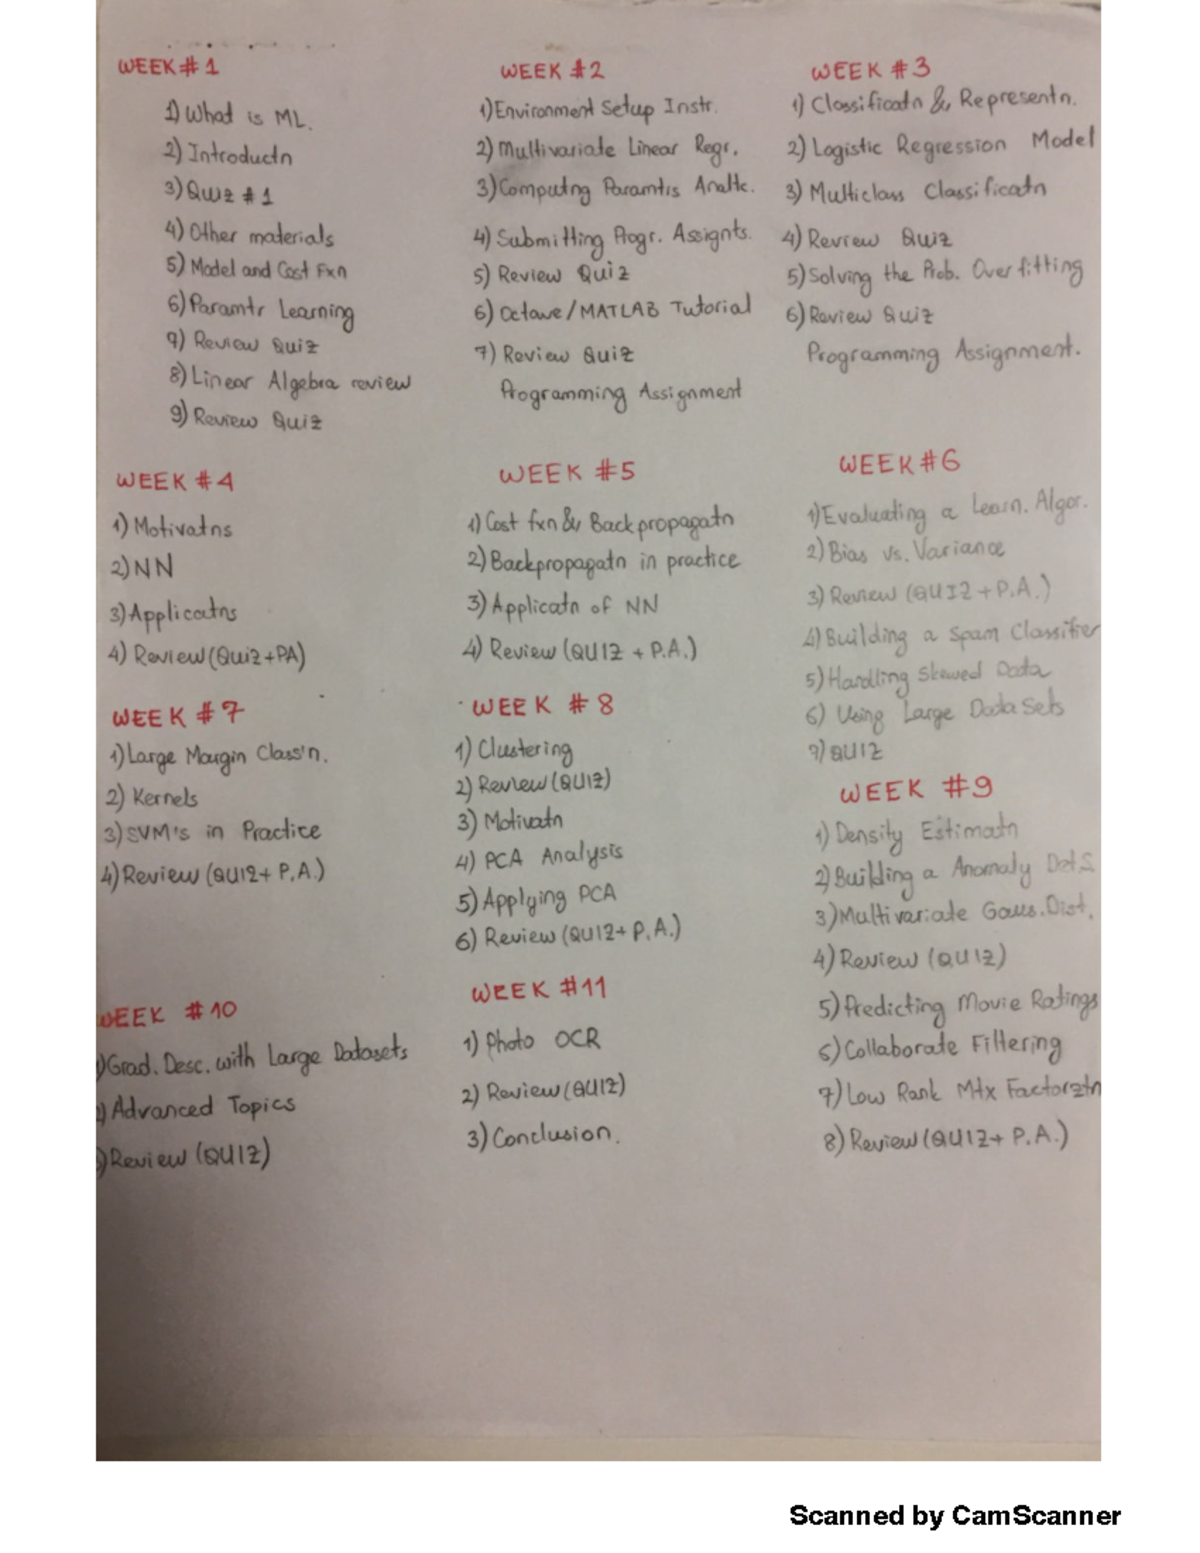 WEEK # 1
1) What is ML.
2) Introductn
3) Quiz # 1
4) Other materials
5) Model and Cost Fxn
6) Paramtr Learning
7) Review Quiz
8) Linear Algebra review
9) Review Quiz
WEEK #2
1) Environment Setup Instr.
2) Multivariate Linear Regr.
3) Computng Paramtrs Analtc.
4) Submitting Progr. Assignts.
5) Review Quiz
6) Octave/MATLAB Tutorial
7) Review Quiz
Programming Assignment
WEEK #3
1) Classificatn & Representn.
2) Logistic Regression Model
3) Multiclass Classificatn
4) Review Quiz
5) Solving the Prob. Overfitting
6) Review Quiz
Programming Assignment.
WEEK #4
1) Motivatns
2) NN
3) Applicatns
4) Review (Quiz+PA)
WEEK #5
1) Cost fxn & Backpropagatn
2) Backpropagatn in practice
3) Applicatn of NN
4) Review (QUIZ + P.A.)
WEEK #6
1) Evaluating a Learn. Algor.
2) Bias vs. Variance
3) Review (QUIZ + P.A.)
4) Building a Spam Classifier
5) Handling Skewed Data
6) Using Large Data Sets
7) QUIZ
WEEK #7
1) Large Margin Class'n.
2) Kernels
3) SVM's in Practice
4) Review (QUIZ+ P.A.)
WEEK #8
1) Clustering
2) Review (QUIZ)
3) Motivatn
4) PCA Analysis
5) Applying PCA
6) Review (QUIZ+ P.A.)
WEEK #9
1) Density Estimatn
2) Building a Anomaly Det.S
3) Multivariate Gaus. Dist.
4) Review (QUIZ)
5) Predicting Movie Ratings
6) Collaborate Filtering
7) Low Rank Mtx Factorztn
8) Review (QUIZ+ P.A.)
WEEK #10
) Grad. Desc. with Large Datasets
) Advanced Topics
) Review (QUIZ)
WEEK #11
1) Photo OCR
2) Review (QUIZ)
3) Conclusion.
Scanned by CamScanner